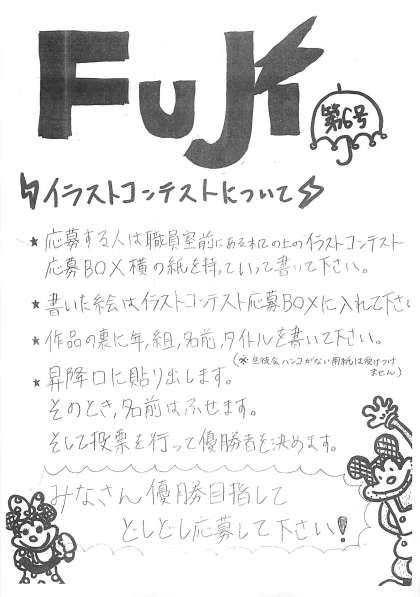 FUJI
第6号
イラストコンテストについて
★ 応募する人は職員室前にある机の上のイラストコンテスト
応募BOX横の紙を持っていって書いて下さい。
★ 書いた絵はイラストコンテスト応募BOXに入れて下さい
★ 作品の裏に年,組,名前,タイトルを書いて下さい。
(※ 生徒会ハンコがない用紙は受けつけ
ません)
★ 昇降口に貼り出します。
そのとき,名前はふせます。
そして投票を行って優勝者を決めます。
みなさん優勝目指して
どしどし応募して下さい!